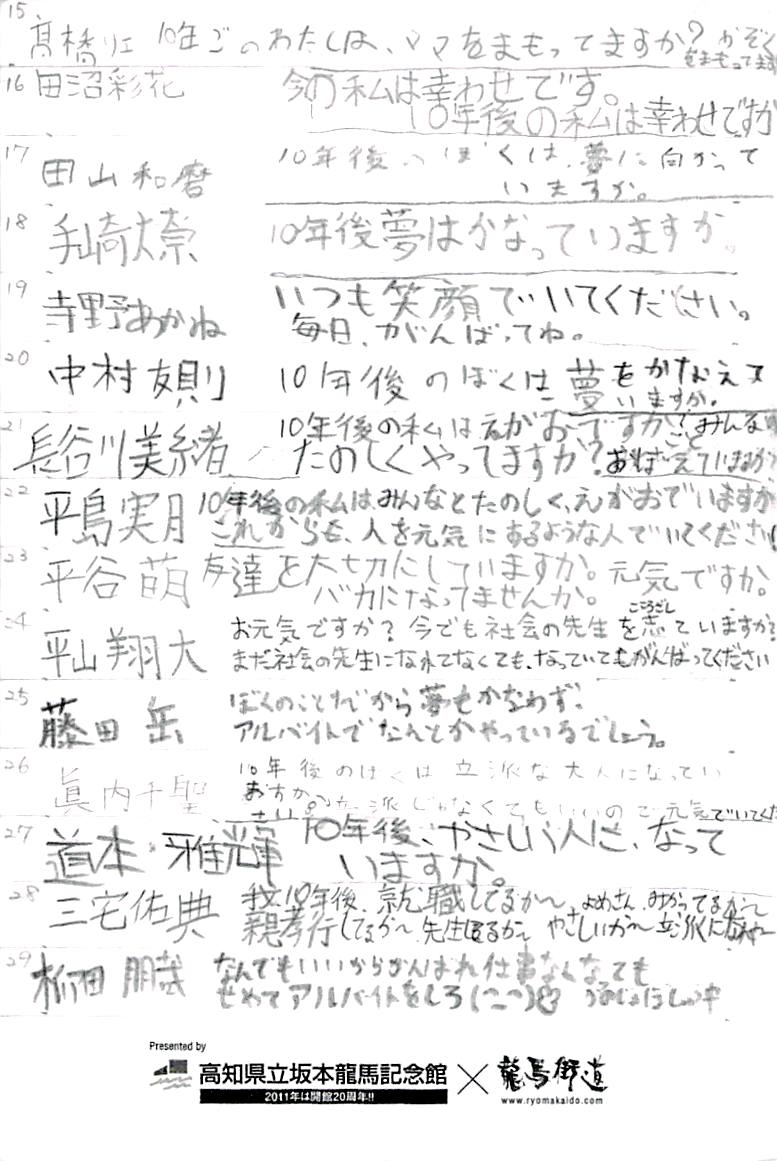 15
高橋リエ 10年ごのわたしは、ママをまもってますか? かぞく
をまもってます
16 田沼彩花 今の私は幸わせです。
10年後の私は幸わせですか
17 田山和磨 10年後のぼくは、夢に向かって
いますか。
18 手崎大奈 10年後夢はかなっていますか。
19 寺野あかね いつも笑顔でいてください。
毎日、がんばってね。
20 中村友則 10年後のぼくは夢をかなえて
いますか。
21 長谷川美緒 10年後の私はえがおですか? みんな
たのしくやってますか? おぼえていますか?
22 平島実月 10年後の私はみんなとたのしく、えがおでいますか
これからも、人を元気にするような人でいてください
23 平谷萌 友達を大切にしていますか。元気ですか。
バカになってませんか。
24 平山翔大 お元気ですか? 今でも社会の先生を志ていますか?
こころざし
まだ社会の先生になれてなくても、なっていてもがんばってください
25 藤田岳 ぼくのことだから夢もかなわず、
アルバイトでなんとかやっているでしょう。
26 眞内千聖 10年後のぼくは立派な大人になってい
ますか。立派じゃなくてもいいので元気でいてくだ
27 道本雅輝 10年後、やさしい人に、なって
いますか。
28 三宅佐典 我、10年後、就職してるか〜、よめさん、みかってるか〜
親孝行してるか〜、先生なるか〜 やさしいか〜 立派に
29 柳田朋哉 なんでもいいからがんばれ仕事なくなても
せめてアルバイトをしろ
Presented by
高知県立坂本龍馬記念館 × 龍馬街道
2011年は開館20周年!!
www.ryomakaido.com